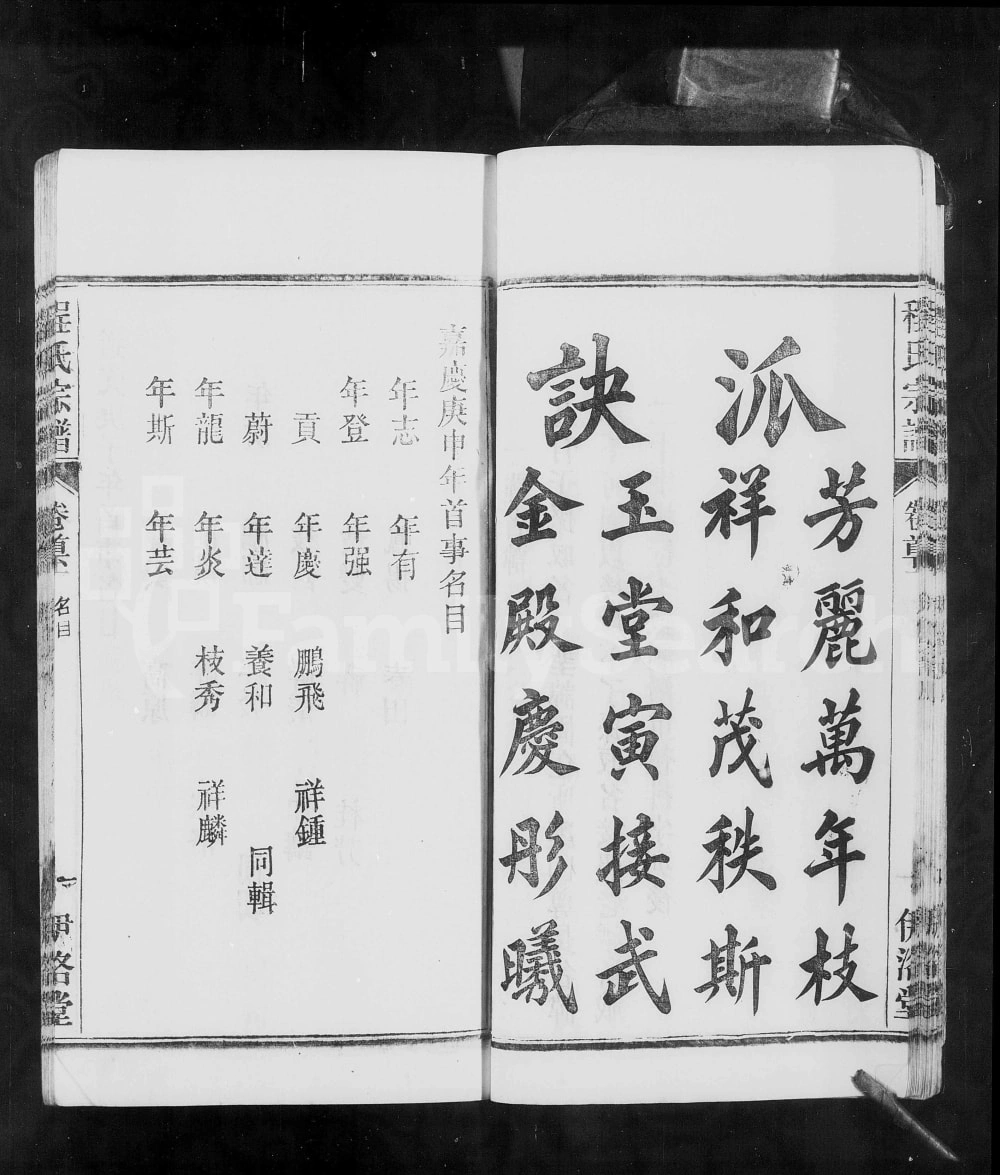 派
訣
芳麗萬年枝
祥和茂秩斯
玉堂寅接武
金殿慶彤曦
程氏宗譜
卷首
伊洛堂
嘉慶庚申年首事名目
年志 年有
年登 年强
貢 年慶 鵬飛 祥鍾
蔚 年達 養和 同輯
年龍 年炎 枝秀 祥麟
年斯 年芸
程氏宗譜
卷首
名目
伊洛堂
FamilySearch